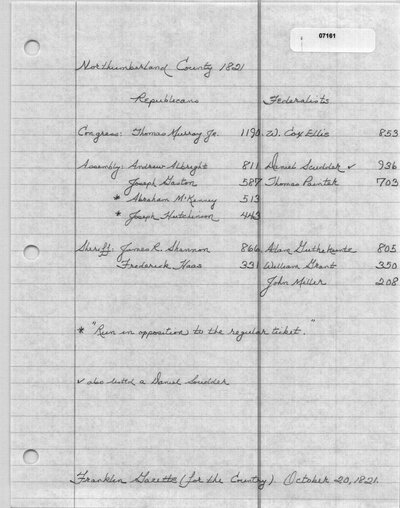 07161
Northumberland County 1821
Republicans Federalists
Congress: Thomas Murray Jr. 1190 W. Cox Ellis 853
Assembly: Andrew Albright 811 Daniel Scudder ✓ 936
Joseph Gaston 587 Thomas Painter 703
* Abraham McKinney 513
* Joseph Hutchinson 443
Sheriff: James R. Shannon 866 Adam Guthekuntz 805
Frederick Haas 331 William Grant 350
John Miller 208
* "Run in opposition to the regular ticket."
✓ also listed a Daniel Scudder
Franklin Gazette (for the Country). October 20, 1821.